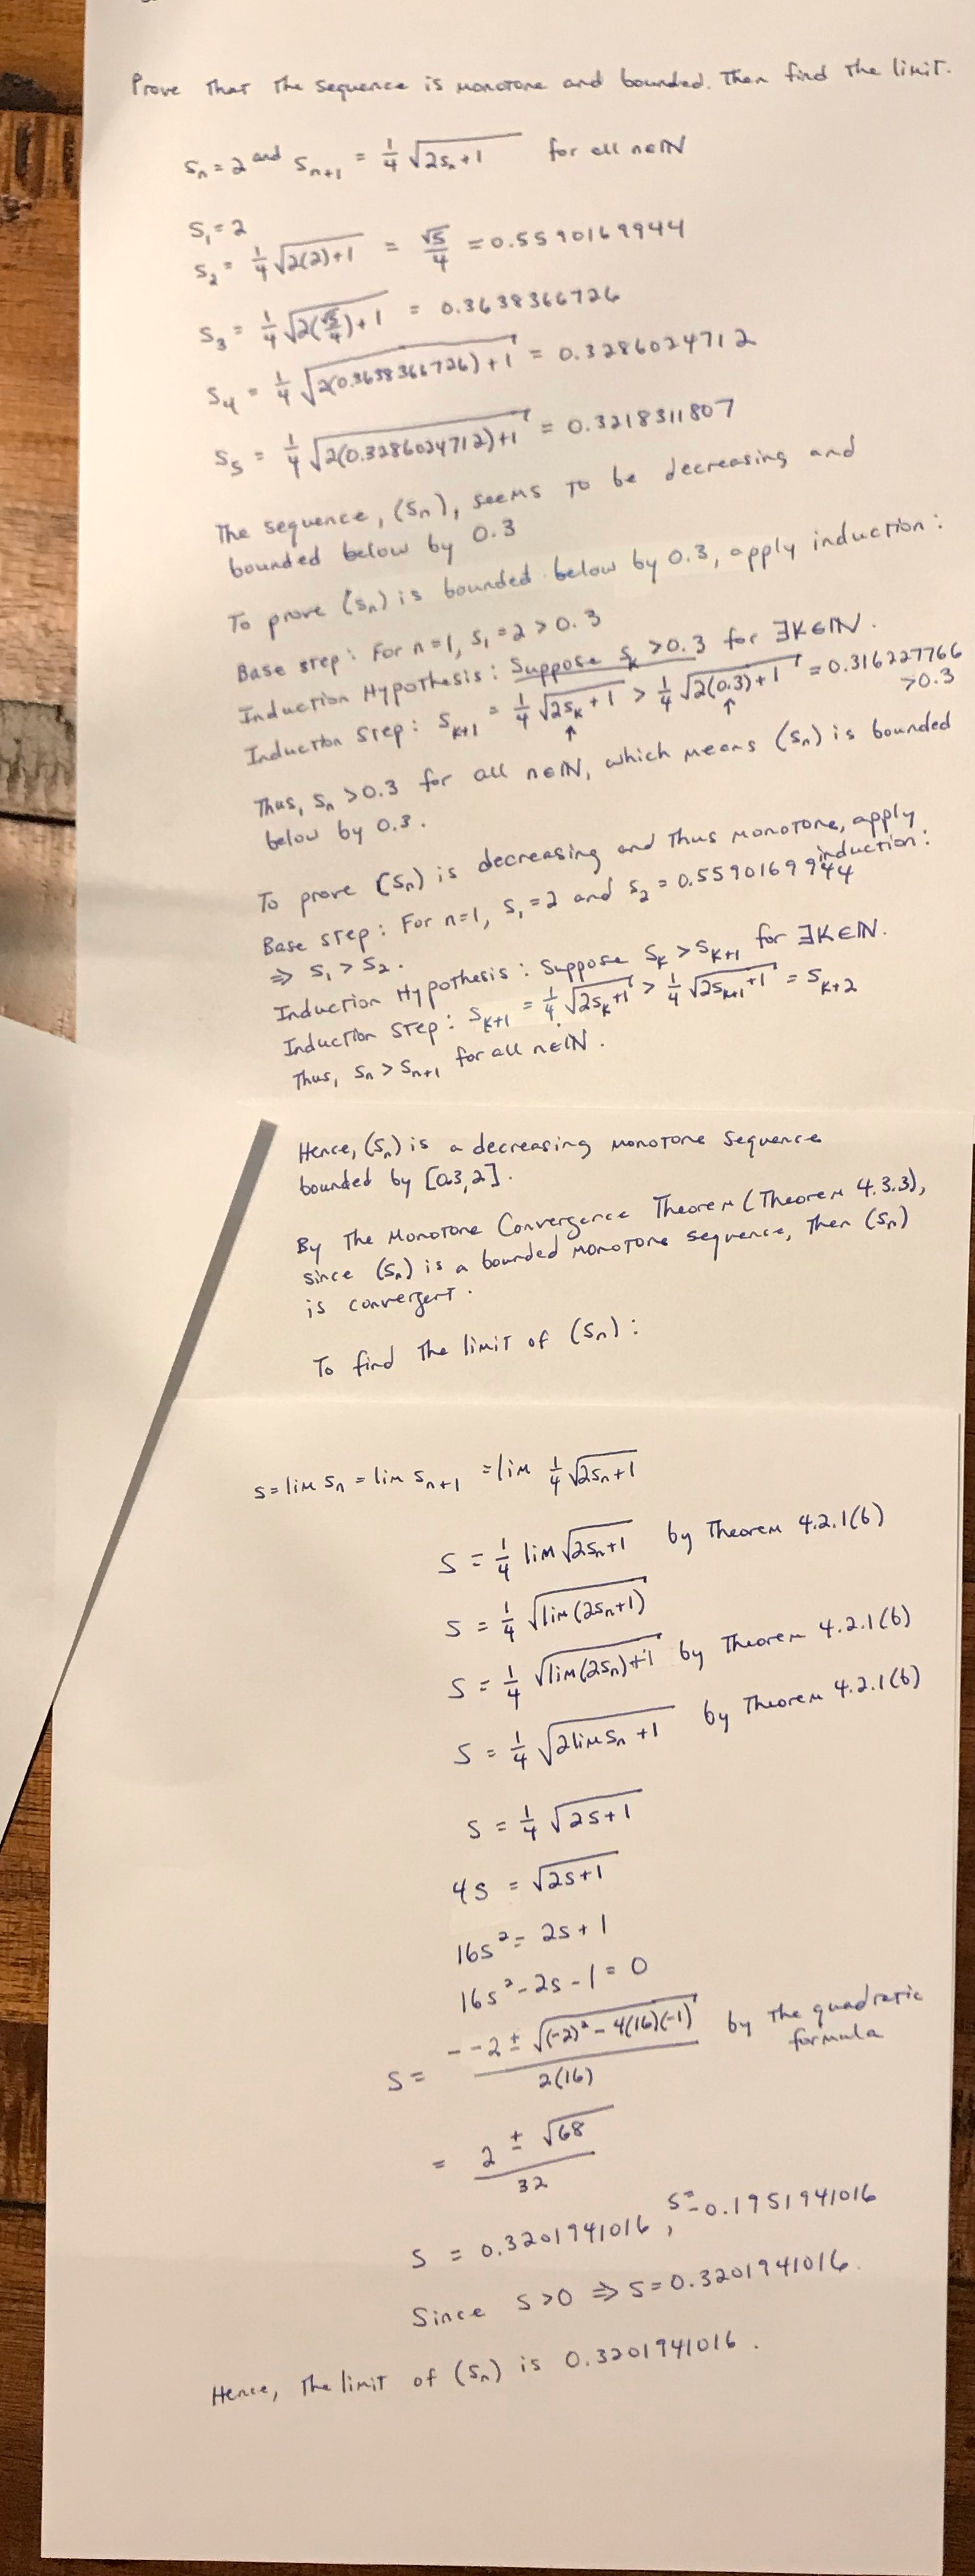 Prove that the sequence is monotone and bounded. Then find the limit.
Sₙ = 2 and Sₙ₊₁ = 1/4 √(2Sₙ+1) for all n∈ℕ
S₁ = 2
S₂ = 1/4 √(2(2)+1) = √5/4 = 0.5590169944
S₃ = 1/4 √(2(√5/4)+1) = 0.3638366726
S₄ = 1/4 √(2(0.3638366726)+1) = 0.3286024712
S₅ = 1/4 √(2(0.3286024712)+1) = 0.3218311807
The sequence, (Sₙ), seems to be decreasing and
bounded below by 0.3
To prove (Sₙ) is bounded below by 0.3, apply induction:
Base step: For n=1, S₁=2 > 0.3
Induction Hypothesis: Suppose Sₖ > 0.3 for ∃k∈ℕ.
Induction Step: Sₖ₊₁ = 1/4 √(2Sₖ+1) > 1/4 √(2(0.3)+1) = 0.316227766
> 0.3
↑ ↑
Thus, Sₙ > 0.3 for all n∈ℕ, which means (Sₙ) is bounded
below by 0.3.
To prove (Sₙ) is decreasing and thus monotone, apply
induction:
Base step: For n=1, S₁=2 and S₂ = 0.5590169944
⇒ S₁ > S₂.
Induction Hypothesis: Suppose Sₖ > Sₖ₊₁ for ∃k∈ℕ.
Induction Step: Sₖ₊₁ = 1/4 √(2Sₖ+1) > 1/4 √(2Sₖ₊₁+1) = Sₖ₊₂
Thus, Sₙ > Sₙ₊₁ for all n∈ℕ.
Hence, (Sₙ) is a decreasing monotone sequence
bounded by [0.3,2].
By the Monotone Convergence Theorem (Theorem 4.3.3),
since (Sₙ) is a bounded monotone sequence, then (Sₙ)
is convergent.
To find the limit of (Sₙ):
S = lim Sₙ = lim Sₙ₊₁ = lim 1/4 √(2Sₙ+1)
S = 1/4 lim √(2Sₙ+1) by Theorem 4.2.1(b)
S = 1/4 √(lim(2Sₙ+1))
S = 1/4 √(lim(2Sₙ)+1) by Theorem 4.2.1(b)
S = 1/4 √(2 lim Sₙ +1) by Theorem 4.2.1(b)
S = 1/4 √(2S+1)
4S = √(2S+1)
16S² = 2S+1
16S² - 2S - 1 = 0
S = (- -2 ± √((-2)² - 4(16)(-1)))/(2(16)) by the quadratic
formula
= (2 ± √68)/32
S = 0.3201941016, S=-0.1951941016
Since S>0 ⇒ S=0.3201941016.
Hence, the limit of (Sₙ) is 0.3201941016.